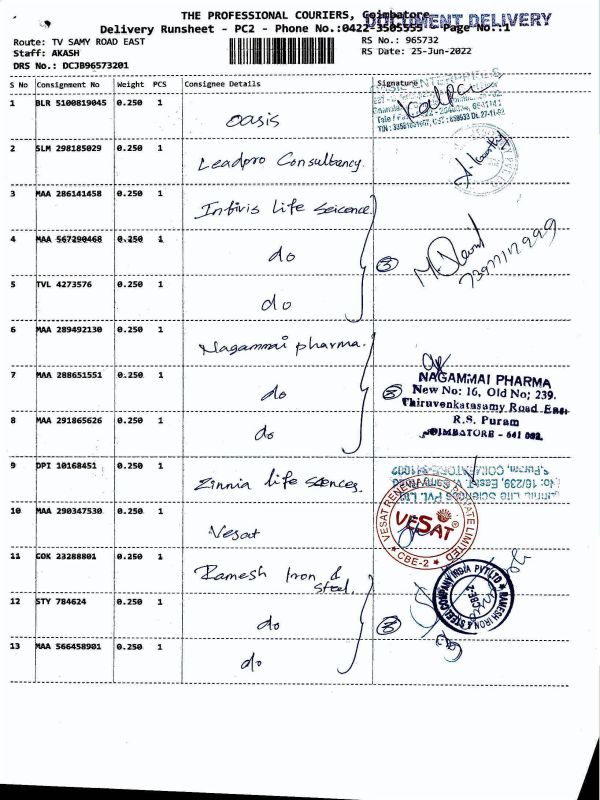 THE PROFESSIONAL COURIERS, Coimbatore
DOCUMENT DELIVERY
Delivery Runsheet - PC2 - Phone No.:0422-3505555 - Page No.:1
Route: TV SAMY ROAD EAST
RS No.: 965732
Staff: AKASH
RS Date: 25-Jun-2022
DRS No.: DCJB96573201
S No Consignment No Weight PCS Consignee Details Signature
1 BLR 5100819045 0.250 1 Oasis
Kalpa
2 SLM 298185029 0.250 1 Leadpro Consultancy.
3 MAA 286141458 0.250 1 Infivis life seicence
4 MAA 567290468 0.250 1 do
3
7397712999
5 TVL 4273576 0.250 1 do
6 MAA 289492130 0.250 1 Nagammai pharma.
7 MAA 288651551 0.250 1 do
NAGAMMAI PHARMA
New No: 16, Old No; 239.
Thiruvenkatasamy Road East
R.S. Puram
COIMBATORE - 641 002.
8 MAA 291865626 0.250 1 do
9 DPI 10168451 0.250 1 Zinnia life sciences
10 MAA 290347530 0.250 1 Vesat
VESAT PRIVATE LIMITED
VESAT
CBE-2
11 COK 23288801 0.250 1 Ramesh Iron &
Steel.
RAMESH IRON & STEEL COMPANY INDIA PVT LTD
CBE-2
12 STY 784624 0.250 1 do
3
13 MAA 566458901 0.250 1 do